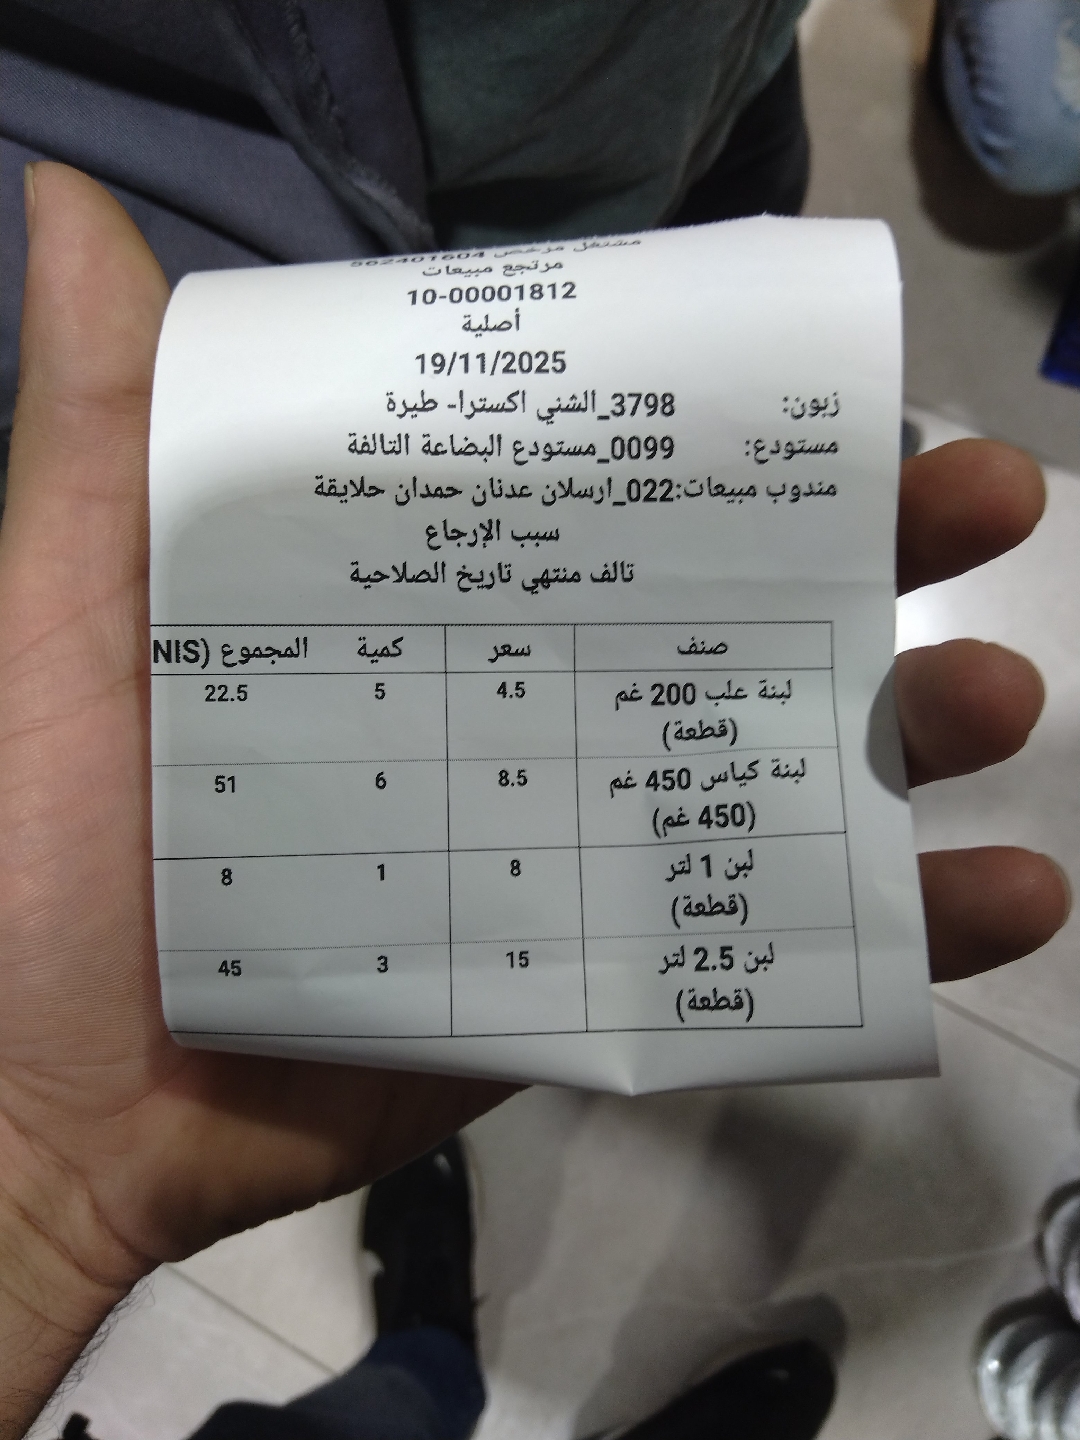 مشتغل مرخص 562401604
مرتجع مبيعات
10-00001812
أصلية
19/11/2025
زبون: 3798_الشني اكسترا- طيرة
مستودع: 0099_مستودع البضاعة التالفة
مندوب مبيعات:022_ارسلان عدنان حمدان حلايقة
سبب الإرجاع
تالف منتهي تاريخ الصلاحية
صنف سعر كمية المجموع (NIS
لبنة علب 200 غم 4.5 5 22.5
(قطعة)
لبنة كياس 450 غم 8.5 6 51
(450 غم)
لبن 1 لتر 8 1 8
(قطعة)
لبن 2.5 لتر 15 3 45
(قطعة)